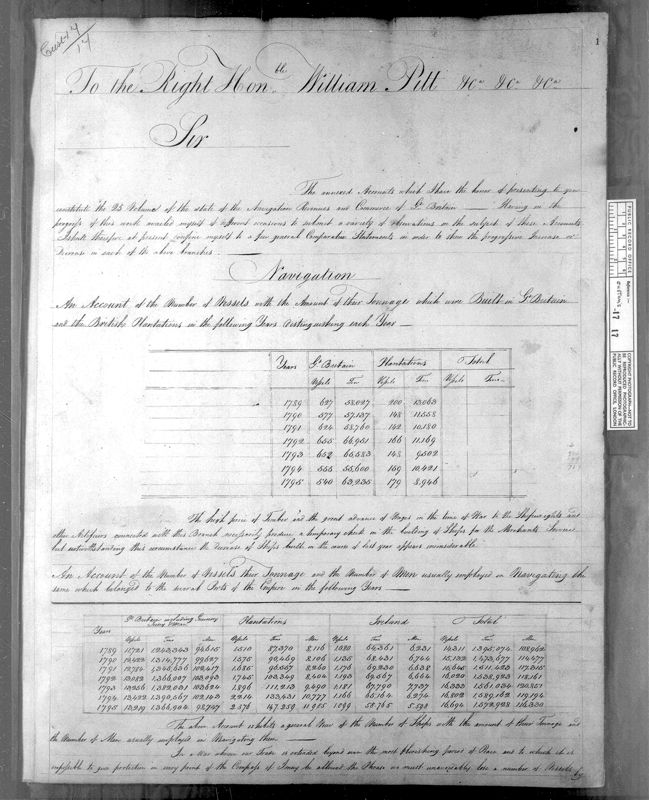 Cust 17
17
1
To the Right Honble. William Pitt &ca &ca &ca
Sir
The annexed Accounts which I have the honor of presenting to you
constitute the 25 Volume of the state of the Navigation Revenues and Commerce of Gt Britain Having in the
progress of this work availed myself of different occasions to submit a variety of observations on the subject of these Accounts
I shall therefore at present confine myself to a few general Comparative Statements in order to shew the progressive Increase or
Decrease in each of the above branches.
Navigation
An Account of the Number of Vessels with the Amount of their Tonnage which were Built in Gt Britain
and the British Plantations in the following Years distinguishing each Year
Years Gt Britain Plantations Total
Vessels Tons Vessels Tons Vessels Tons
1789 627 58,027 200 13,063
1790 577 57,137 148 11,558
1791 624 58,760 142 10,180
1792 655 66,951 166 11,169
1793 652 65,583 148 9,502
1794 555 55,600 159 10,421
1795 540 63,235 179 8,946
The high price of Timber and the great advance of Wages in the time of War to the Shipwrights and
other Artificers connected with this Branch necessarily produce a temporary check on the building of Ships for the Merchants Service
but notwithstanding this circumstance the decrease of Ships built in the course of last year appears inconsiderable
An Account of the Number of Vessels their Tonnage and the Number of Men usually employed in Navigating the
same which belonged to the several Ports of the Empire in the following Years
Years Gt Britain including Guernsey Jersey & Man Plantations Ireland Total
Vessels Tons Men Vessels Tons Men Vessels Tons Men Vessels Tons Men
1789 11,721 1,243,343 94,615 1510 87,370 8,116 1080 64,361 6,231 14,311 1,395,074 108,962
1790 12,422 1,314,777 99,627 1575 90,469 8,106 1135 68,431 6,744 15,132 1,473,677 114,477
1791 12,784 1,346,636 102,417 1685 95,557 8,260 1,176 69,230 6,638 15,645 1,511,423 117,315
1792 13,082 1,366,007 103,093 1745 103,349 8,404 1193 69,567 6,664 16,020 1,538,923 118,161
1793 13,256 1,382,031 103,624 1896 111,213 9,490 1181 67,790 7,737 16,333 1,561,034 120,851
1794 13,422 1,390,567 102,143 2214 133,431 10,777 1166 65,164 6,274 16,802 1,589,162 119,194
1795 13,219 1,366,904 98,707 2,376 147,259 11,985 1099 58,765 5,592 16,694 1,572,928 116,330
The above Account exhibits a general View of the Number of Ships with the amount of their Tonnage and
the Number of Men usually employed in Navigating them
In a War where our Trade is extended beyond even the most flourishing period of Peace and to which it is
impossible to give protection in every point of the Compass if I may be allowed the Phrase we must unavoidably lose a number of Vessels by
PUBLIC RECORD OFFICE
Reference :-
CUST 17 17
COPYRIGHT PHOTOGRAPH - NOT TO
BE REPRODUCED PHOTOGRAPHIC-
ALLY WITHOUT PERMISSION OF THE
PUBLIC RECORD OFFICE, LONDON